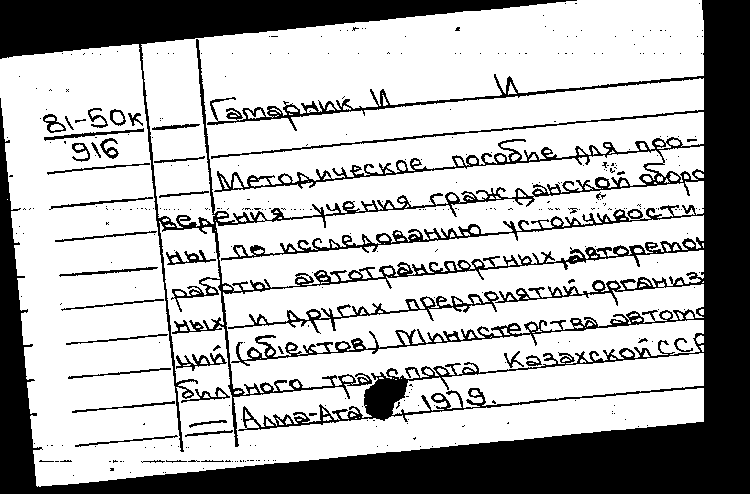 81-50к
916
Гатарник, И И
Методическое пособие для про-
ведения учения гражданской оборо
ны по исследованию устойчивости
работы автотранспортных, авторемон
ных и других предприятий, организа
ций (объектов) Министерства автомо
бильного транспорта Казахской ССР
— Алма-Ата, 1979.